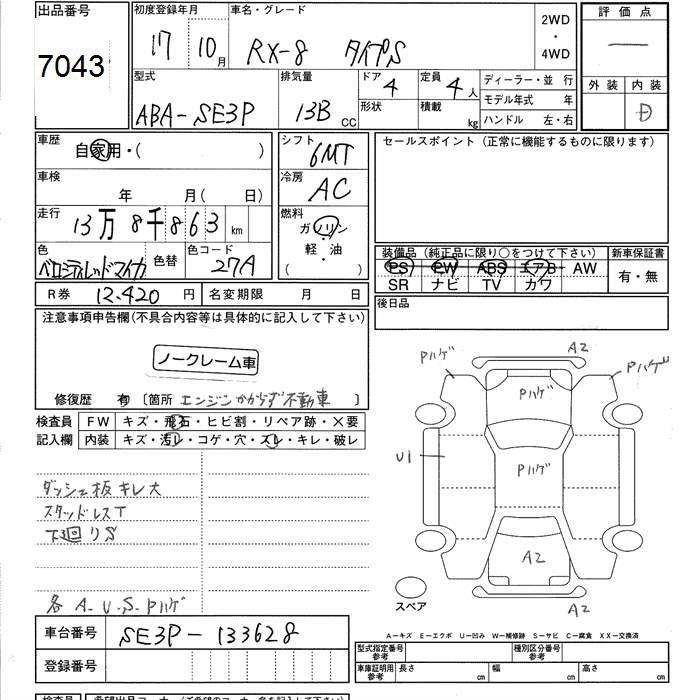 出品番号 初度登録年月 車名・グレード 2WD・4WD 評価点
7043 17 10月 RX-8 タイプS ー
型式 排気量 ドア 4 定員 4人 ディーラー・並行 外装 内装
ABA-SE3P 13B CC 形状 積載 kg モデル年式 年 D
ハンドル 左・右
車歴 自家用・( ) シフト 6MT セールスポイント (正常に機能するものに限ります)
車検 年 月( 日) 冷房 AC
走行 13万8千863 km 燃料 ガソリン
軽・油
( )
色 ベロシティレッドマイカ 色替 色コード 27A
装備品 (純正品に限り○をつけて下さい) 新車保証書
PS PW ABS エアB AW 有・無
SR ナビ TV カワ
R券 12.420 円 名変期限 月 日 後日品
注意事項申告欄(不具合内容等は具体的に記入して下さい)
ノークレーム車
修復歴 有 〔箇所 エンジンかからず不動車 〕
検査員 FW キズ・飛石・ヒビ割・リペア跡・×要
記入欄 内装 キズ・汚レ・コゲ・穴・スレ・キレ・破レ
Pハゲ A2 Pハゲ
Pハゲ
U1 Pハゲ
A2
スペア A2
ダッシュ板キレ大
スタッドレスT
下廻りS
各A.U.S.Pハゲ
A-キズ E-エクボ U-凹み W-補修跡 S-サビ C-腐食 XX-交換済
車台番号 SE3P-133628
型式指定番号 参考 種別区分番号 参考
登録番号 車庫証明用 参考 長さ cm 幅 cm 高さ cm